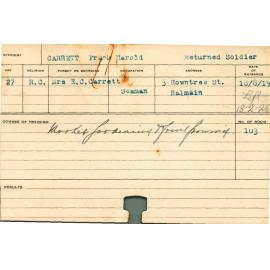 STUDENT GARRETT Frank Harold Returned Soldier
AGE RELIGION PARENT OR GUARDIAN OCCUPATION ADDRESS DATE OF ENTRANCE
27 R.C. Mrs E.C.Garrett Seaman 3 Rowntree St. Balmain 18/8/19
COURSE OF TRAINING NO. OF ROOM
Market Gardening 103
RESULTS